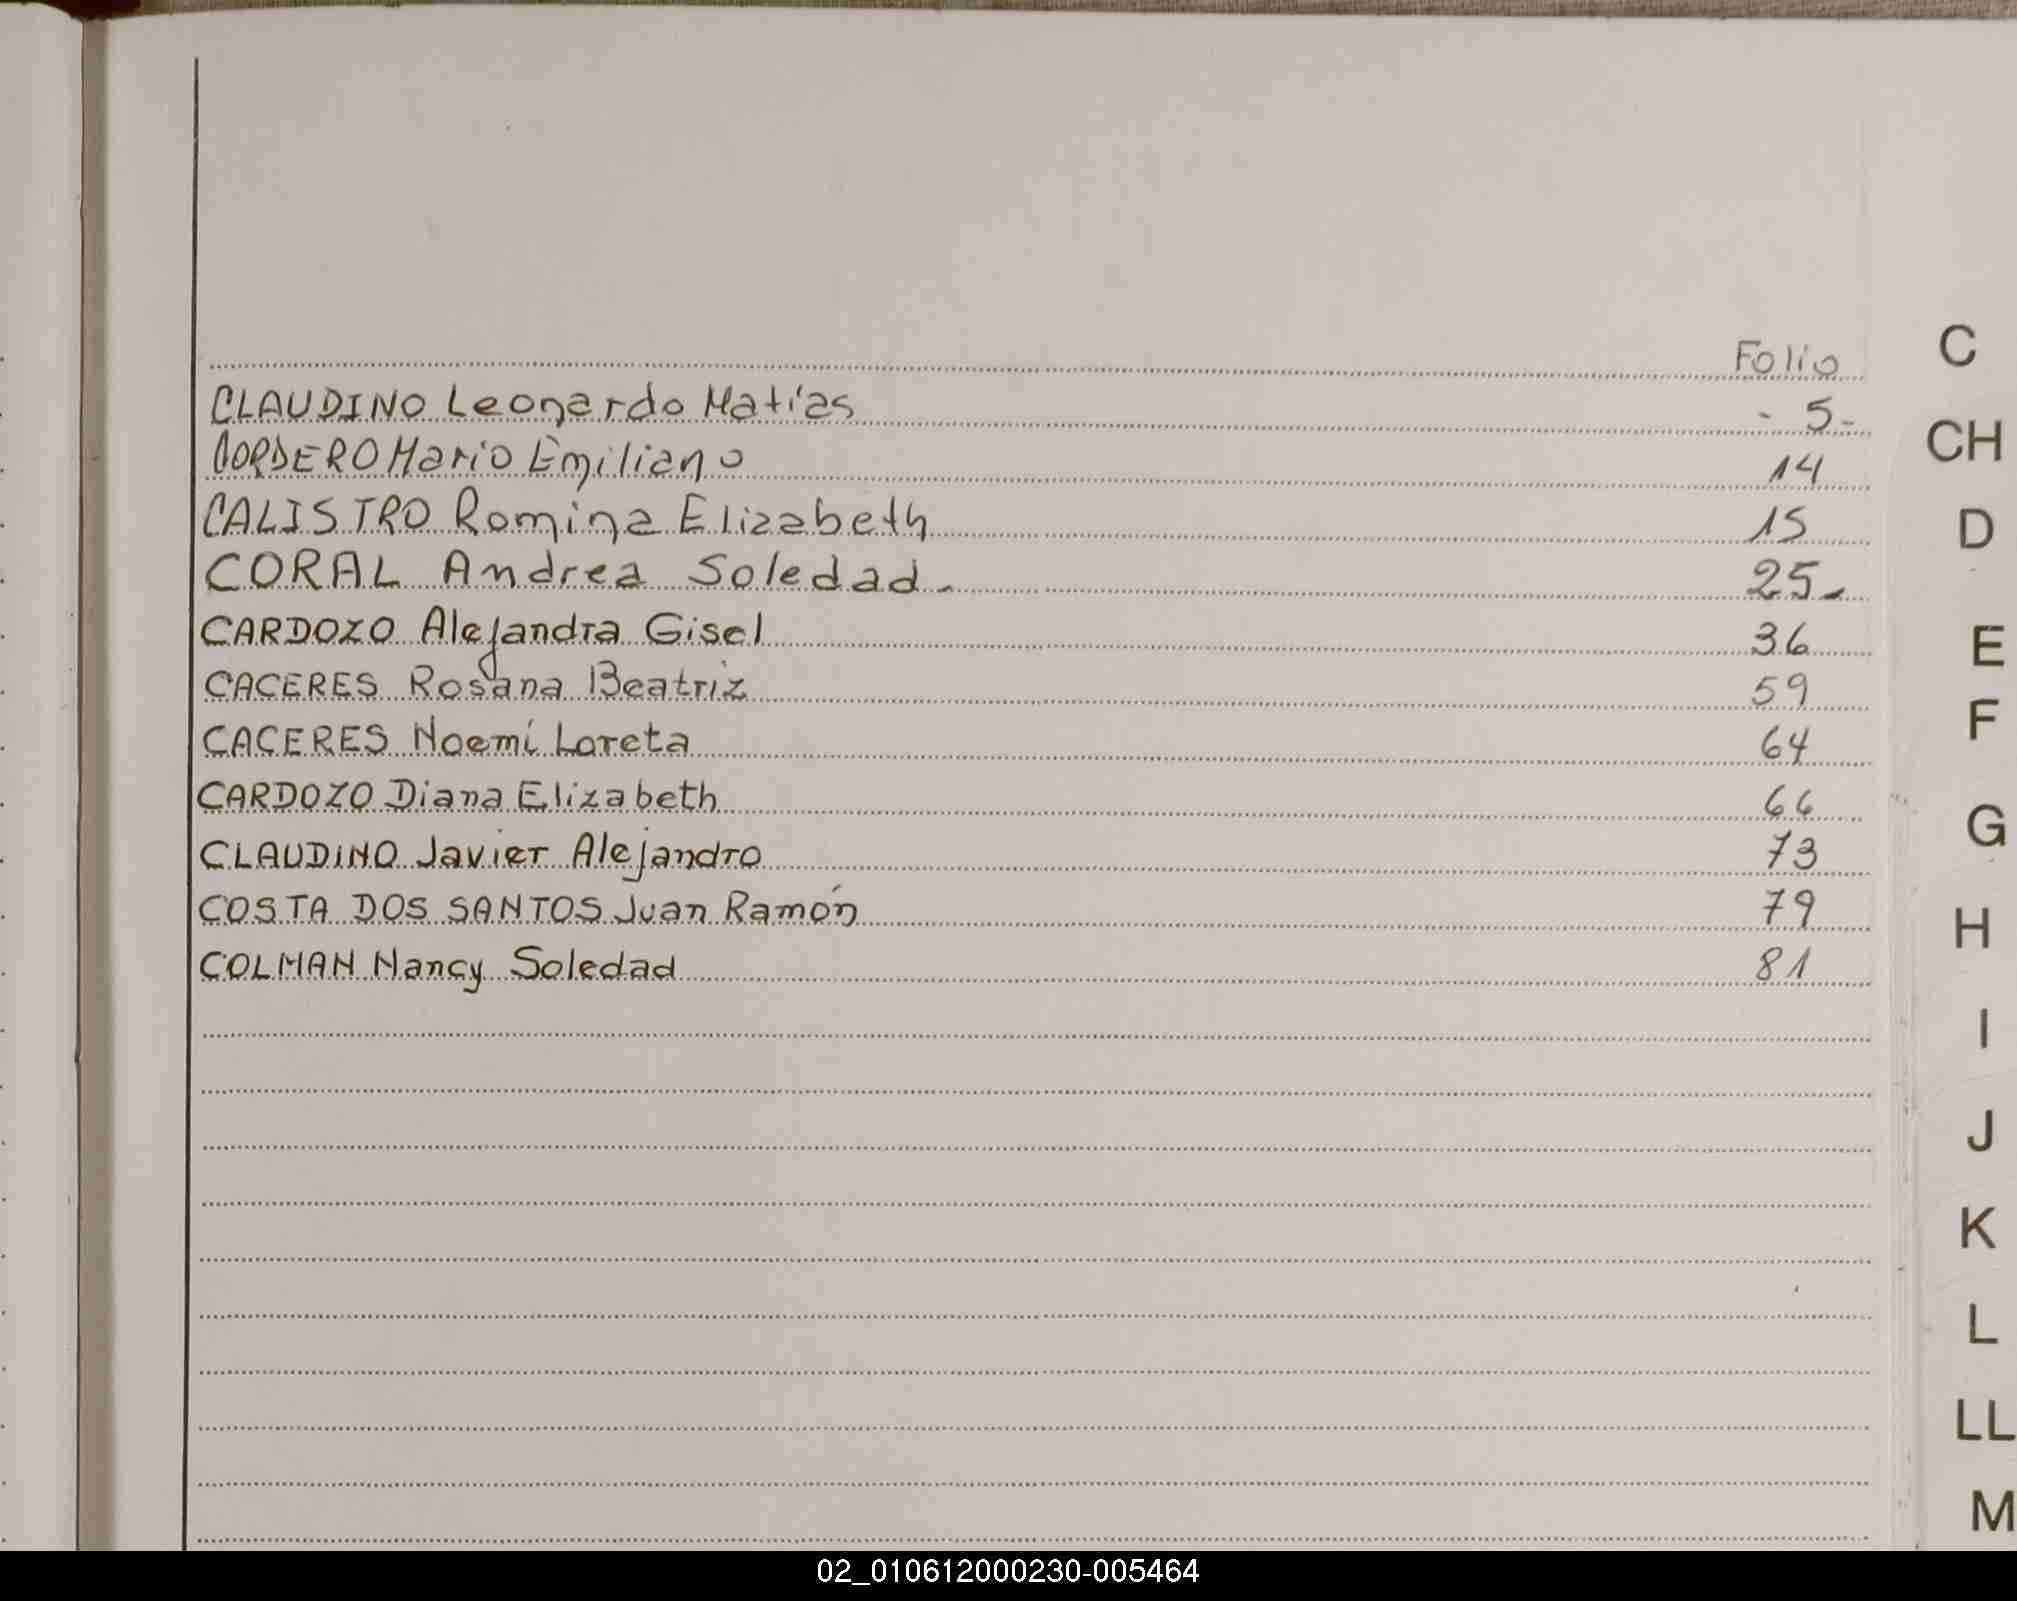 Folio
CLAUDINO Leonardo Matías - 5 -
CORDERO Mario Emiliano 14
CALISTRO Romina Elizabeth 15
CORAL Andrea Soledad - 25 -
CARDOZO Alejandra Gisel 36
CACERES Rosana Beatriz 59
CACERES Noemí Loreta 64
CARDOZO Diana Elizabeth 66
CLAUDINO Javier Alejandro 73
COSTA DOS SANTOS Juan Ramón 79
COLMAN Nancy Soledad 81
C
CH
D
E
F
G
H
I
J
K
L
LL
M
02_010612000230-005464